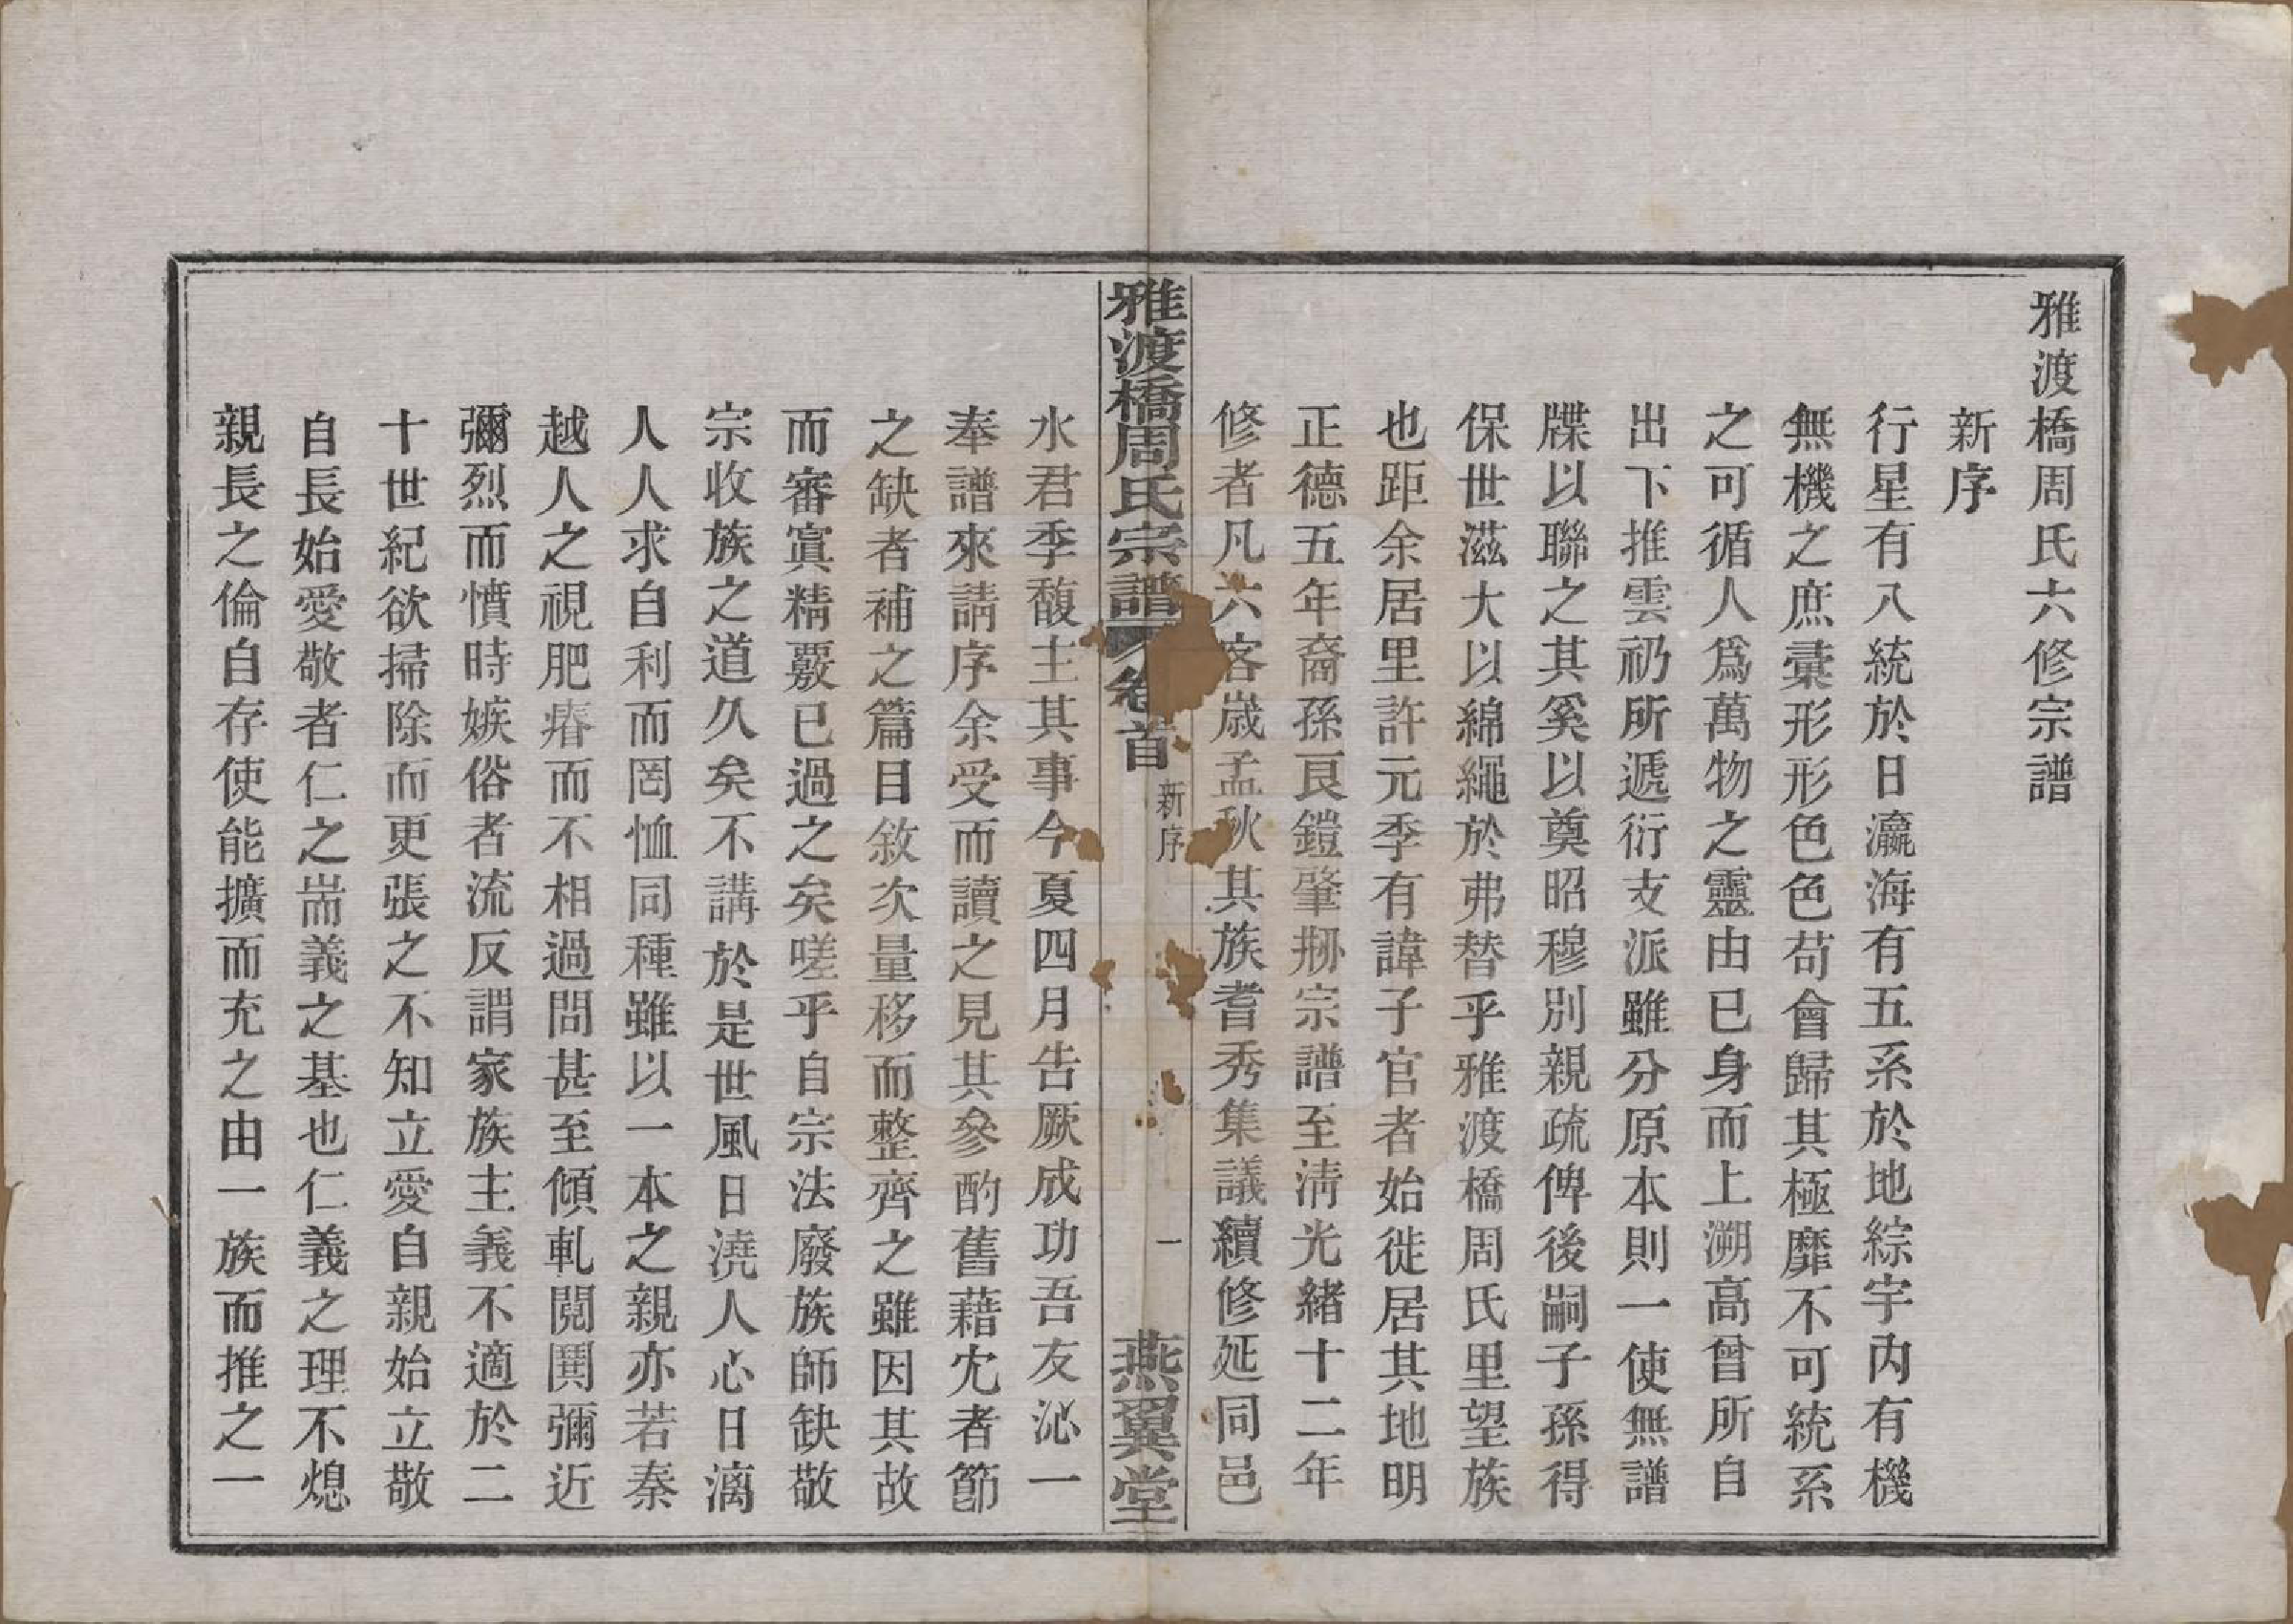 雅渡橋周氏六修宗譜
新序
行星有八統於日瀛海有五系於地綜宇內有機
無機之庶彙形形色色苟會歸其極靡不可統系
之可循人爲萬物之靈由已身而上溯高曾所自
出下推雲礽所遞衍支派雖分原本則一使無譜
牒以聯之其奚以奠昭穆別親疏俾後嗣子孫得
保世滋大以綿繩於弗替乎雅渡橋周氏里望族
也距余居里許元季有諱子官者始徙居其地明
正德五年裔孫艮鎧肇刱宗譜至淸光緒十二年
修者凡六客歲孟秋其族耆秀集議續修延同邑
雅渡橋周氏宗譜
卷首
新序
一
燕翼堂
水君季馥主其事今夏四月告厥成功吾友沁一
奉譜來請序余受而讀之見其參酌舊藉冗者節
之缺者補之篇目敘次量移而整齊之雖因其故
而審寘精覈已過之矣嗟乎自宗法廢族師缺敬
宗收族之道久矣不講於是世風日澆人心日漓
人人求自利而罔恤同種雖以一本之親亦若秦
越人之視肥瘠而不相過問甚至傾軋閱鬨彌近
彌烈而憤時嫉俗者流反謂家族主義不適於二
十世紀欲掃除而更張之不知立愛自親始立敬
自長始愛敬者仁之耑義之基也仁義之理不熄
親長之倫自存使能擴而充之由一族而推之一